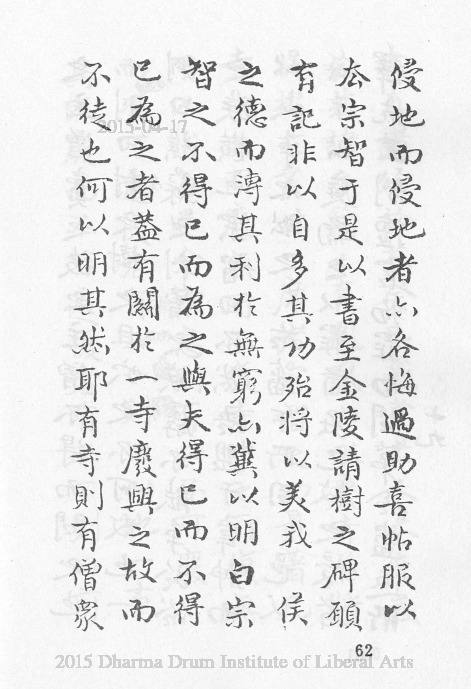 侵地而侵地者亦各悔過助喜帖服以
宗智于是以書至金陵請樹之碑願
有記非以自多其功殆將以美我 侯
之德而溥其利於無窮亦冀以明白宗
智之不得已而為之與夫得已而不得
已為之者葢有關於一寺廢興之故而
不徒也何以明其然耶有寺則有僧眾
62
2015-04-17
2015 Dharma Drum Institute of Liberal Arts